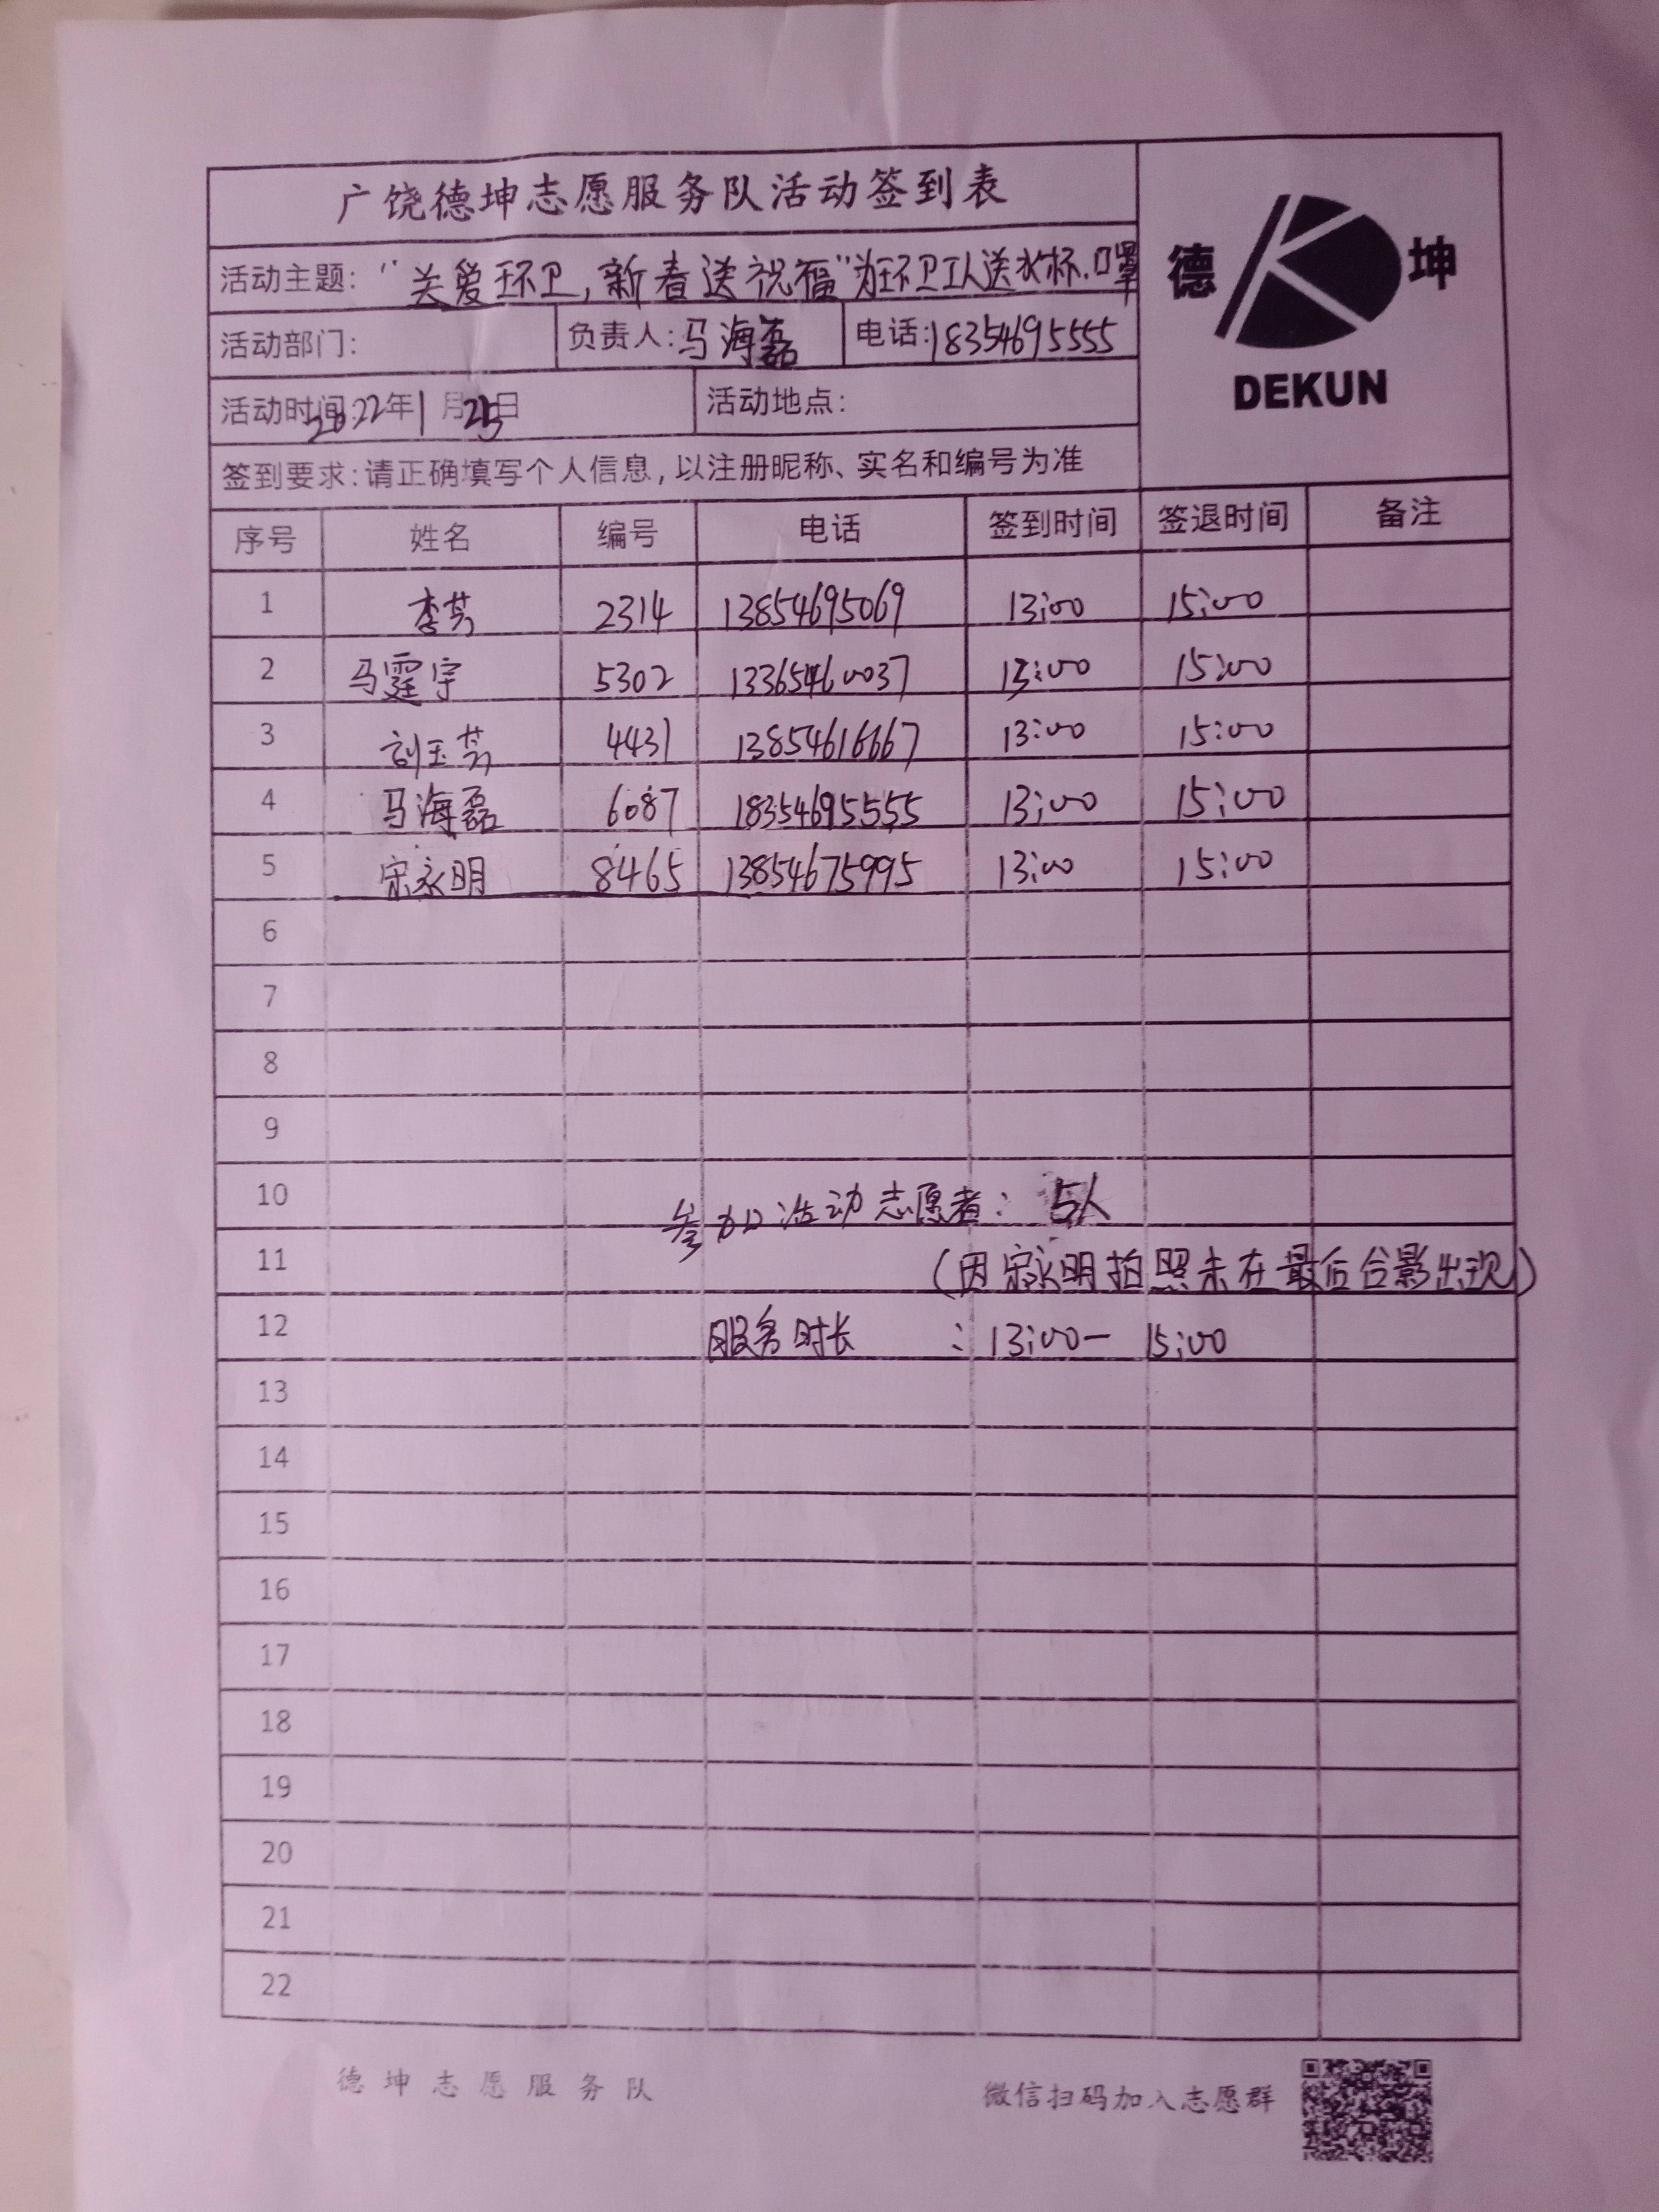 广饶德坤志愿服务队活动签到表
德 坤
DEKUN
活动主题: “关爱环卫,新春送祝福”为环卫工人送水杯.口罩
活动部门: 负责人:马海磊 电话:18354695555
活动时间:2022年1月25日 活动地点:
签到要求:请正确填写个人信息,以注册昵称、实名和编号为准
序号 姓名 编号 电话 签到时间 签退时间 备注
1 李芳 2314 13854695069 13:00 15:00
2 马霆宇 5302 13365460037 13:00 15:00
3 刘玉芳 4431 13854616667 13:00 15:00
4 马海磊 6087 18354695555 13:00 15:00
5 宋永明 8465 13854675995 13:00 15:00
6
7
8
9
10 参加活动志愿者: 5人
11 (因宋永明拍照未在最后合影出现)
12 服务时长 : 13:00— 15:00
13
14
15
16
17
18
19
20
21
22
德坤志愿服务队 微信扫码加入志愿群